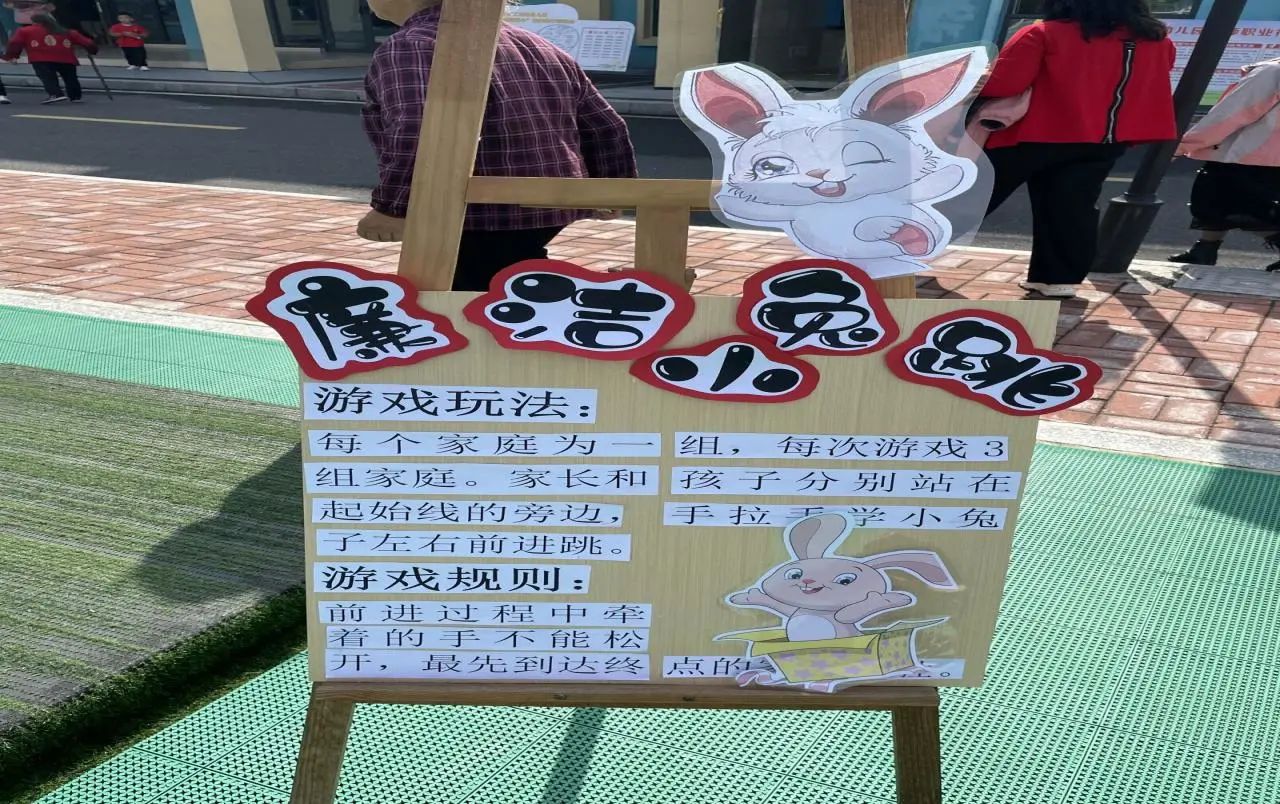 廉洁小兔跳
游戏玩法：
每个家庭为一组，每次游戏3
组家庭。家长和孩子分别站在
起始线的旁边，手拉手学小兔
子左右前进跳。
游戏规则：
前进过程中牵
着的手不能松
开，最先到达终点的